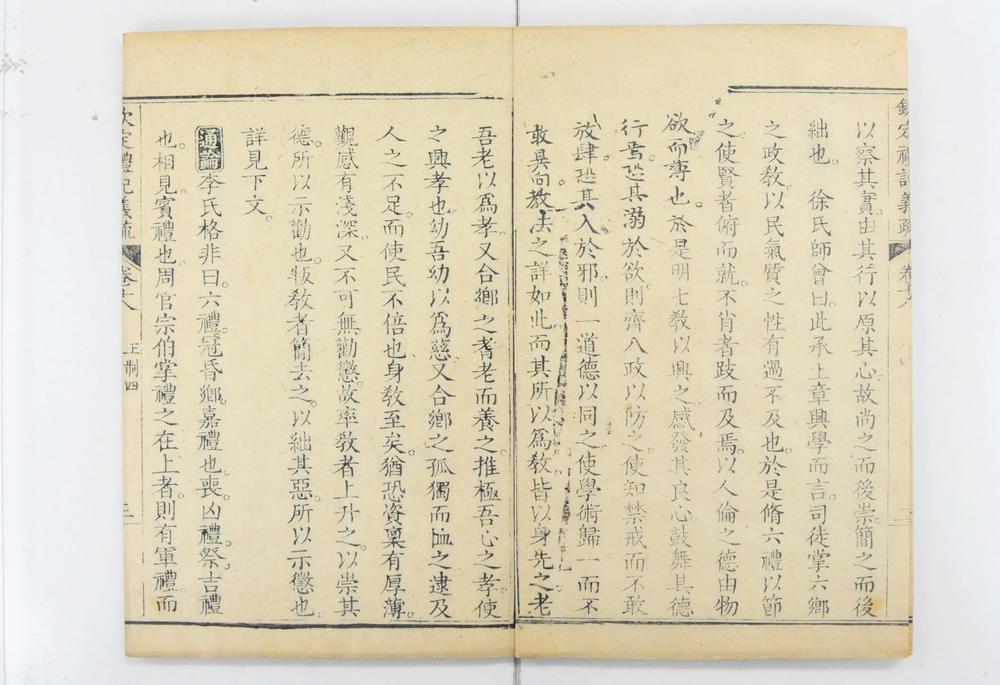 欽定禮記義疏 卷十八
以察其實由其行以原其心故尚之而後崇簡之而後
絀也 徐氏師曾曰此承上章興學而言司徒掌六鄉
之政教以民氣質之性有過不及也於是脩六禮以節
之使賢者俯而就不肖者跂而及焉以人倫之德由物
欲而薄也於是明七教以興之感發其良心鼓舞其德
行焉恐其溺於欲則齊八政以防之使知禁戒而不敢
放肆恐其入於邪則一道德以同之使學術歸一而不
敢異向教法之詳如此而其所以為教皆以身先之老
吾老以爲孝又合鄉之耆老而養之推極吾心之孝使
之興孝也幼吾幼以爲慈又合鄉之孤獨而䘏之逮及
人之不足而使民不倍也身教至矣猶恐資稟有厚薄
觀感有淺深又不可無勸懲故率教者上升之以崇其
德所以示勸也叛教者簡去之以絀其惡所以示懲也
詳見下文
通論 李氏格非曰六禮冠昏鄉嘉禮也喪凶禮祭吉禮
也相見賓禮也周官宗伯掌禮之在上者則有軍禮而
欽定禮記義疏 卷十八 王制四 三